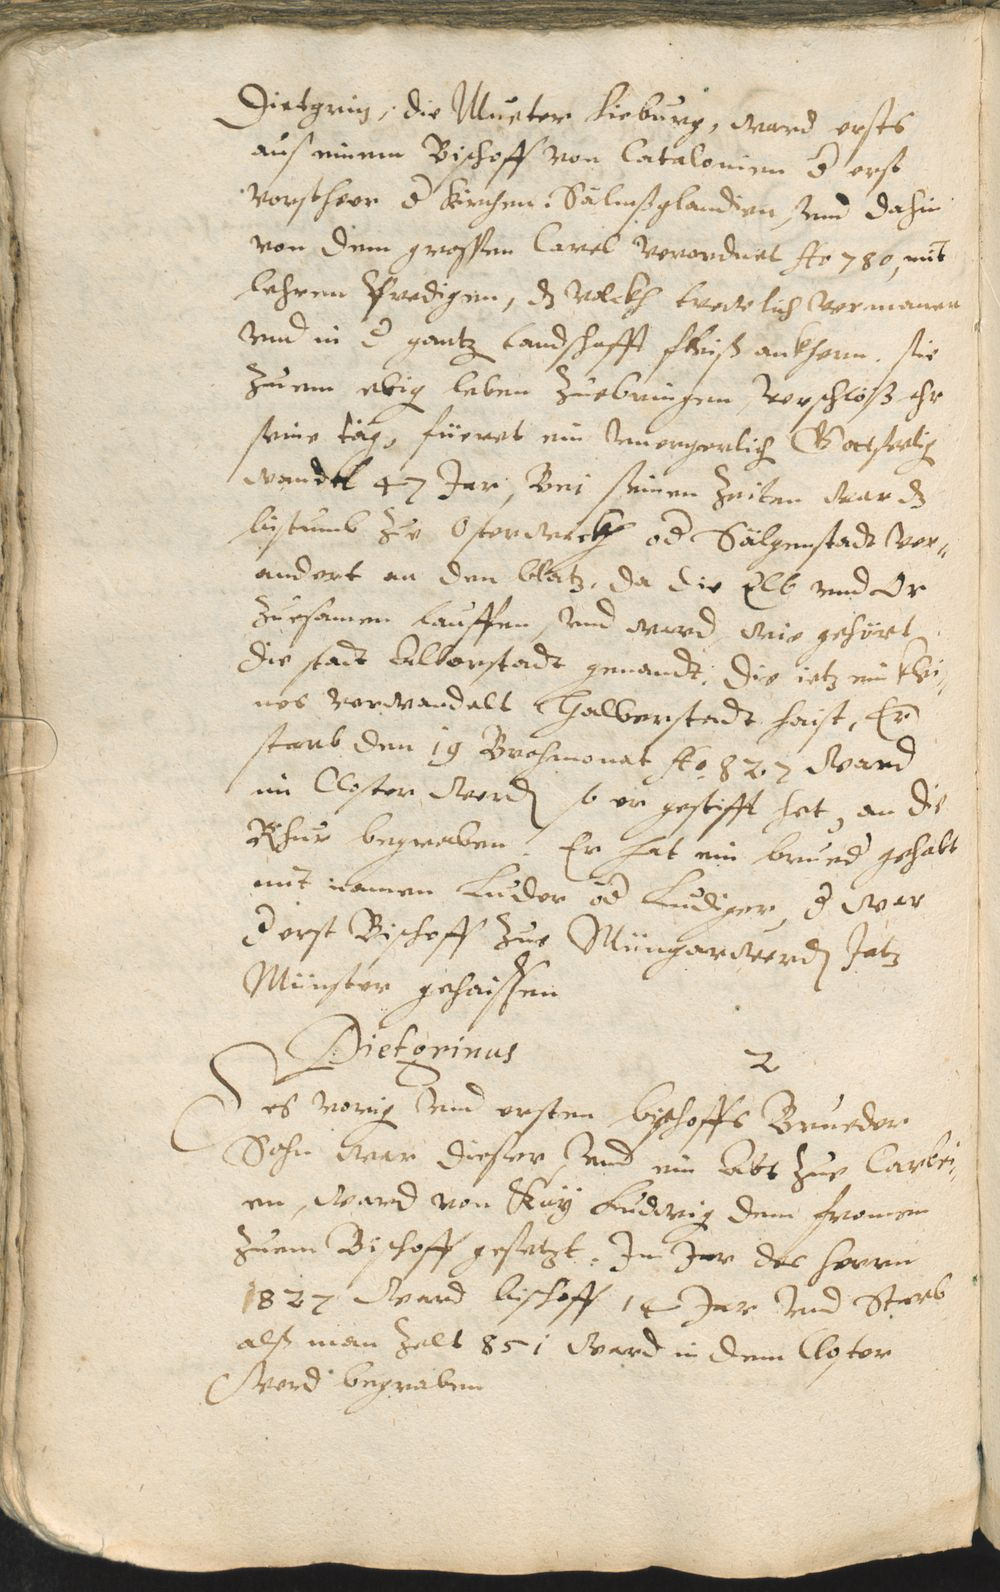 Dietgrin, die Mueter Lieburg, ward ersts
auß einem Bischoff von Catalonien d erst
vorsteer d Kirchen. Sälinßglandien, vnd dahin
von dem grossen Carel verordnet Ao 780, mit
lehren Predigen, dz volckh trewlich vermanen
vnd in d gantz Landschafft fleiß ankhern. sie
zuem ebig leben zuebringen verschloß ehr
seine täg, füeret ein vnergerlich Gottselig
wandel 47 Jar, Bei seinen Zeiten war dz
bistumb zue Osterweckh od Sälgenstadt ver„
andert an den blatz, da die Elb vnd Or
zuesamen lauffen, vnd ward wie gehört
die stadt Alberstadt genandt. die ietz ein klei„
nes verwandelt Halberstadt haist, Er
starb den 19 Brachmonat Ao 827 Ward
im Closter Werd, so er gestifft het, an die
Rhur begraben. Er hat ein brued gehabt
mit namen Luder od Ludiger, d war
d erst Bischoff zue Müngarwerd, Jetz
Münster gehaissen
Dietgrinus 2
Des vorig vnd ersten bischoffs Brueder
Sohn war dieser, vnd ein Abt zue Carbei„
en, ward von Kay Ludwig dem fromen
zuem Bischoff gesetzt. Im Jar des herrn
1827 Ward bischoff 14 Jar vnd Starb
alß man zelt 851 Ward in dem Closter
Werd begraben